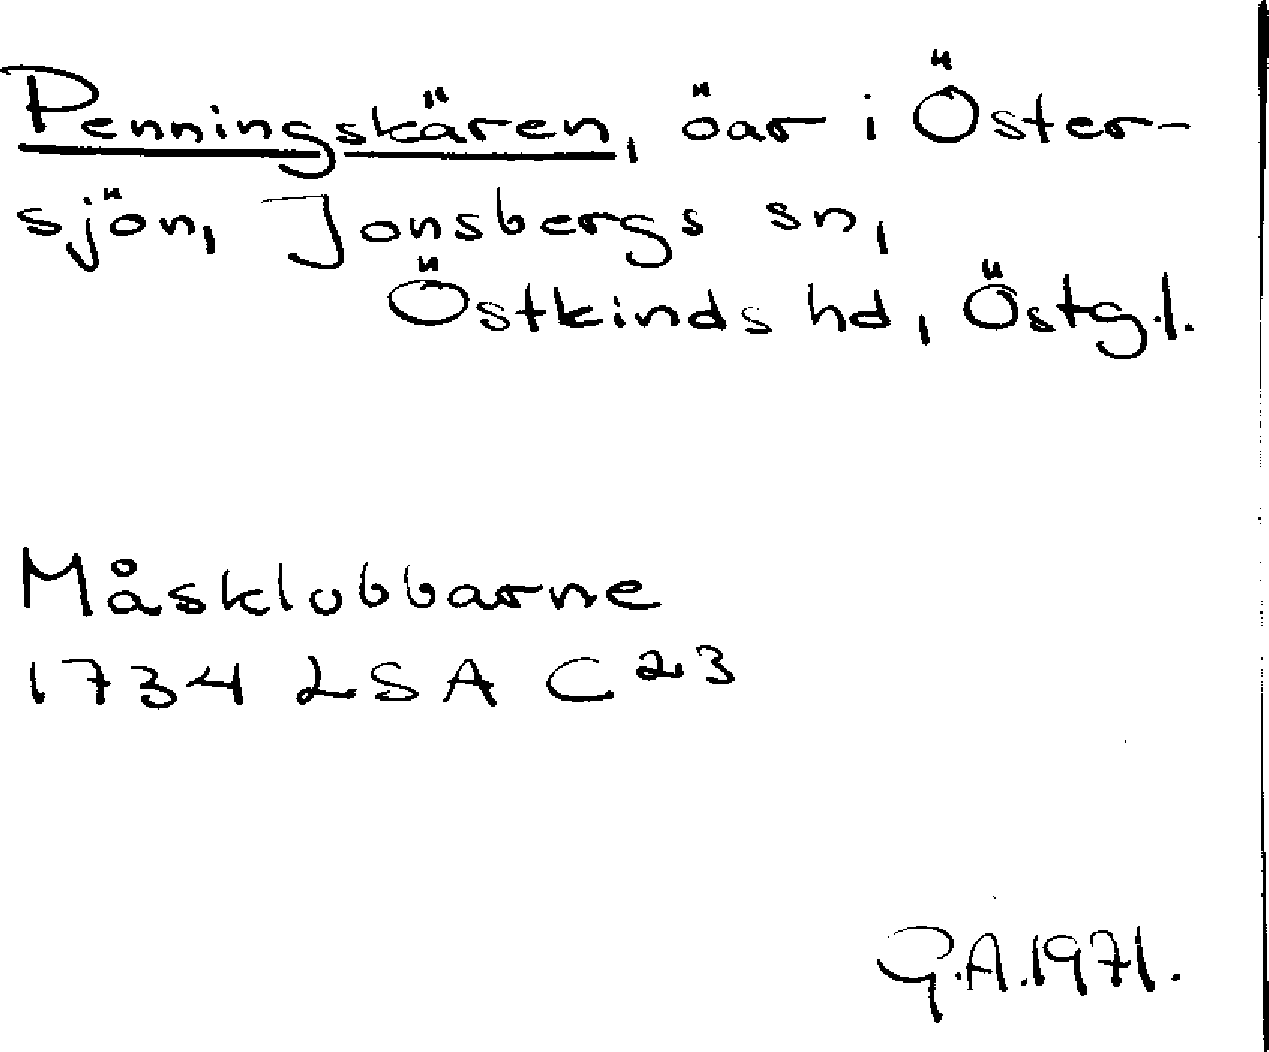 Penningskären, öar i Öster-
sjön, Jonsbergs sn,
Östkinds hd, Östg.l.
Måsklubbarne
1734 LSA C 23
G.A.1971.